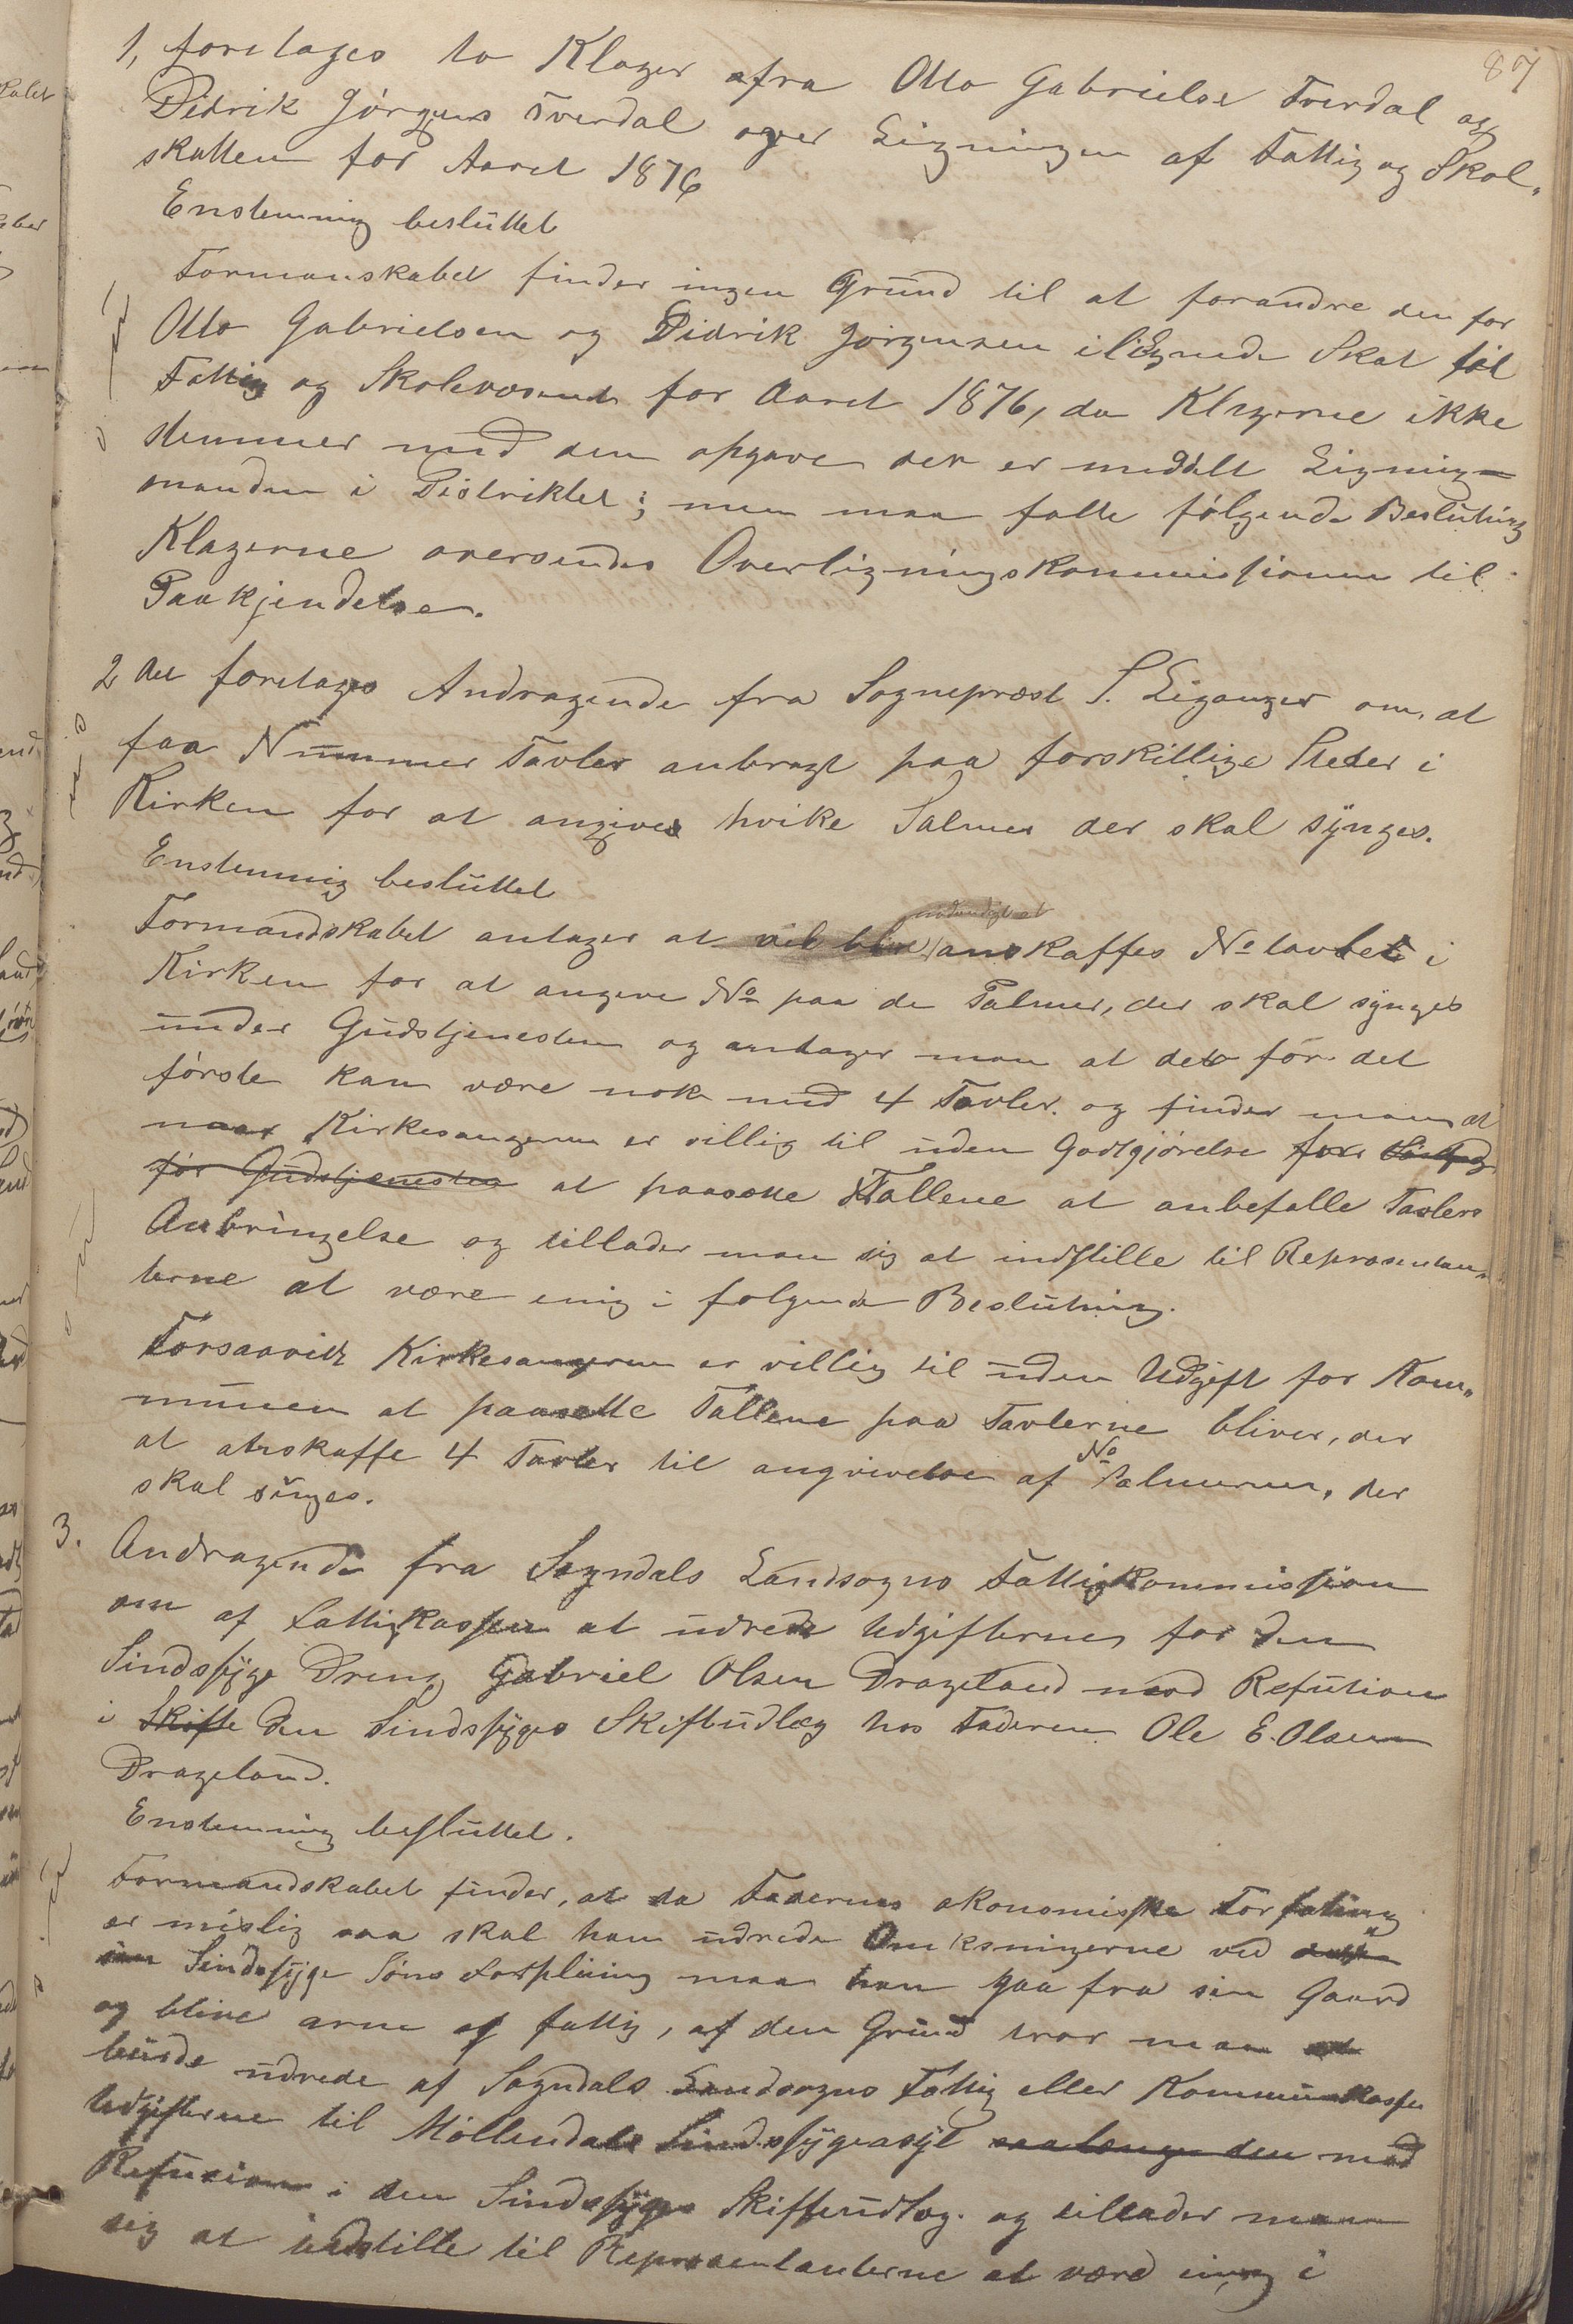 87
1, foretages to Klager afra Otto Gabrielse Tverdal og
Didrik Jørgens Tverdal over Ligningen af Fattig og Skol„
skatten for Aaret 1876
Enstemmig besluttet
Formanskabet finder ingen Grund til at forandre den for
Otto Gabrielsen og Didrik Jørgensen ilignede Skat til
Fattig og Skolevæsenet for Aaret 1876, da Klagerne ikke
stemmer med den opgave der er meddelt Ligning-
manden i Distriktet; men maa fatte følgende Beslutning
Klagerne oversendes Overligningskommissionen til
Paakjendelse.
2 det foretages Andragende fra Sogneprest S. Eiganger om, at
faa Nummer Tavler anbragt paa forskillige Steder i
Kirken for at angives hvike Salmer der skal synges.
Enstemmig besluttet
nødvendigt at
Formandskabet antager at vil blive anskaffes No tavlet i
Kirken for at angive No paa de Salmer, der skal synges
under Gudstjenesten og antager man at det før det
første kan være nok med 4 Tavler. og finder man at
naar Kirkesangeren er villig til uden Godtgjørelse for
før Gudstjenesten at paasætte Tallene at anbefalle Tavlers
Anbringelse og tillader man sig at indstille til Repræsentan„
terne at være enig i følgende Beslutning.
Forsaavidt Kirkesangeren er villig til uden Udgift for Kom„
munen at paasætte Tallene paa Tavlerne bliver, der
at anskaffe 4 Tavler til angivelse af No Salmerne, der
skal singes.
3. Andragende fra Sogndals Landsogns Fattigkommission
om af Fattigkassen at udrede Udgifterne for den
Sindssyge Dreng Gabriel Olsen Drageland med Refution
i Skifte den Sindssyges Skiftudlæg hos Faderen Ole E. Olsen
Drageland.
Enstemmig besluttet.
Formandskabet finder, at da Faderens økonomiske Forfatning
er mislig saa skal han udrede Omksningerne ved
sin Sindssyge Søns Forpleining maa han gaa fra sin Gaard
og blive arm og fattig, af den Grund tror man at
burde udrede af Sogndals Landsogns Fattig eller Kommunekasse
Udgifterne til Møllendals Sindssygeasyl saalænge den med
Refusion i den Sindssyges Skifteudlæg. og tillader man
sig at indstille til Repræsentanterne at være enig i